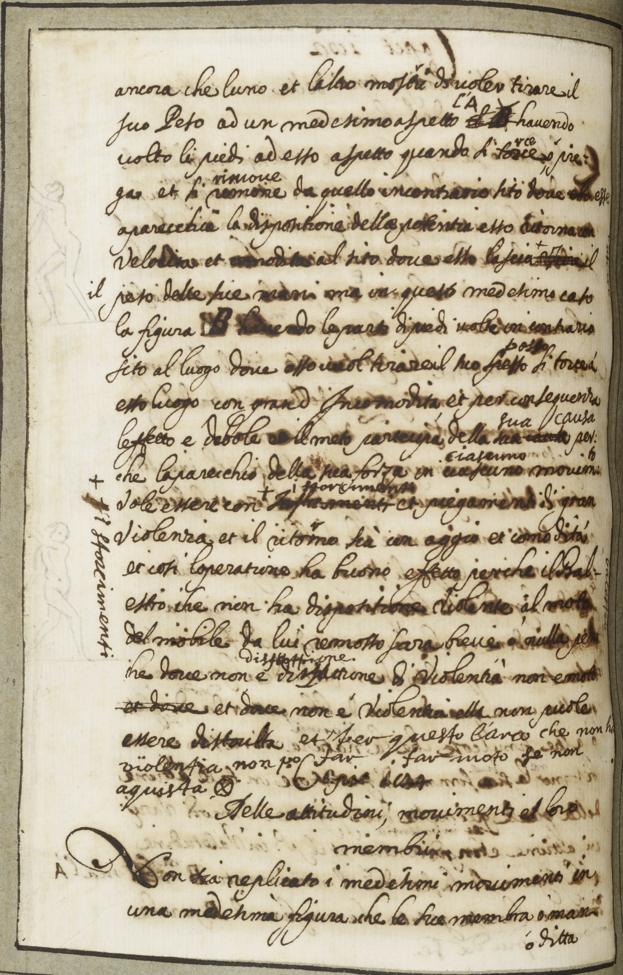 ancora che luno et laltro mostri di voler tirare il
suo Peso ad un medesimo aspetto havendo
LA
volto li piedi ad esso aspetto quando si force, o pie-
rce
ga et si rimone da quello incontrario sito dove esse
rimove
aparecchia la dispositione della potentia esso ritorna
velocita et al sito dove esso lascia il
il peso delle sue mani ma in questo medesimo caso
la figura B havendo le parti di piedi volte in contrario
sito al luogo dove esso vuol tirare il suo peso si torcerà
esso luogo con grand Incomodita et per consequenza
leffetto e debole et il moto partecipa della sua causa per-
sua causa
che laparecchio della sua forza in ciascuno movim
ciascuno
vole essere con + et piegamenti di gran
storcimenti
+ di storcimenti
violenza et il ritorno sia con aggio et comodità
et cosi loperatione ha buono effetto perche il Bal-
estro che non ha dispositione violente al moto
del mobile da lui remosso sara breve o nulla per
che dove non è disfatione di violentia non e moto
disfattione
et dove et dove non é violentia ella non puole
essere distrutta et per questo l'arco che non h
violentia non far moto se non
aquista
Delle attitudini, movimenti et loro
membri
A
Non sia replicato i medesimi movimenti in
una medesima figura che le sue membra o man
ó ditta